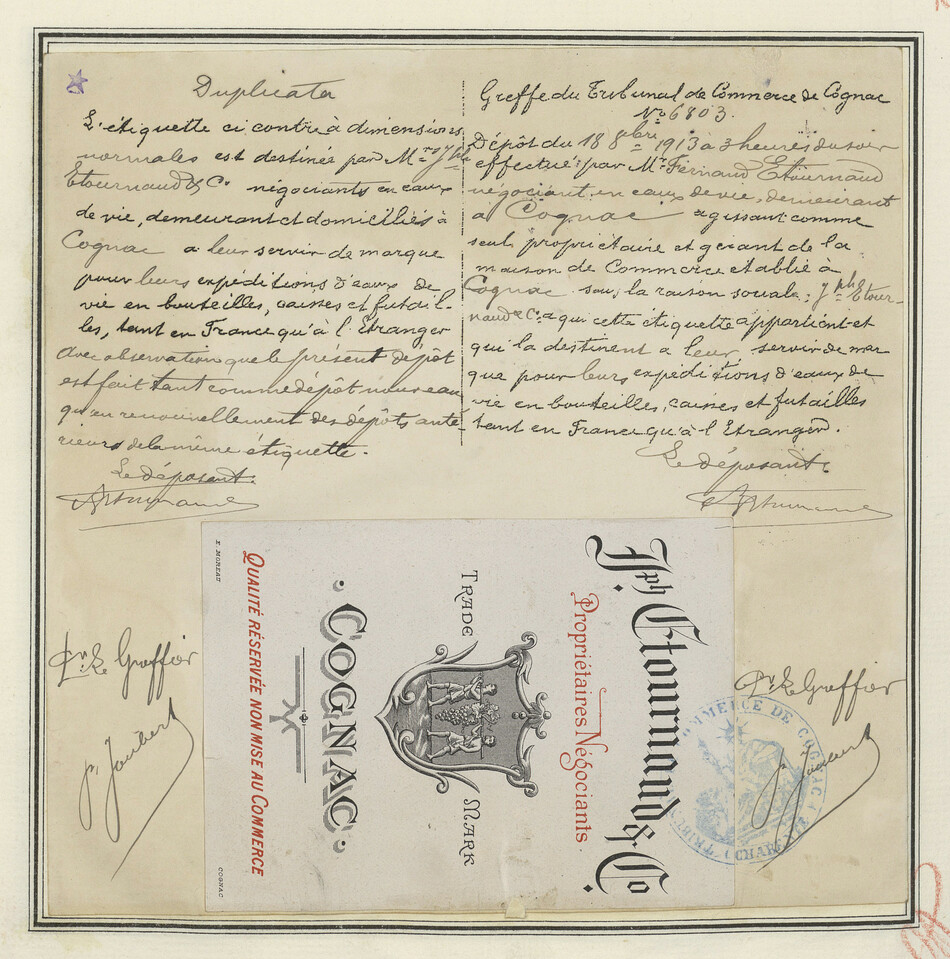 Duplicata
L'étiquette ci contre à dimensions
normales est destinée par Mr. Jph
Etournaud & Co négociants en eaux
de vie, demeurant et domiciliés à
Cognac à leur servir de marque
pour leurs expéditions d'eaux de
vie en bouteilles, caisses et futail-
les, tant en France qu'à l'Etranger
avec observation que le présent dépôt
est fait tant comme dépôt nouveau
qu'en renouvellement des dépôts anté-
rieurs de la même étiquette.
Le déposant.
Greffe du Tribunal de Commerce de Cognac
No 6803.
Dépôt du 18 8bre 1913 à 3 heures du soir
effectué par Mr. Fernand Etournaud
négociant en eaux de vie, demeurant
à Cognac agissant comme
seul propriétaire et gérant de la
maison de Commerce établie à
Cognac sous la raison sociale: Jph Etour-
naud & Co à qui cette étiquette appartient et
qui la destinent à leur servir de mar
que pour leurs expéditions d'eaux de
vie en bouteilles, caisses et futailles
tant en France qu'à l'Etranger.
Le déposant
Jph. Etournaud & Co.
Propriétaires Négociants.
TRADE MARK
COGNAC
QUALITÉ RÉSERVÉE NON MISE AU COMMERCE
F. MOREAU
COGNAC
Pr. Le Greffier
P. Joubert
Pr. Le Greffier
P. Joubert
COMMERCE DE COGNAC
(CHARENTE)